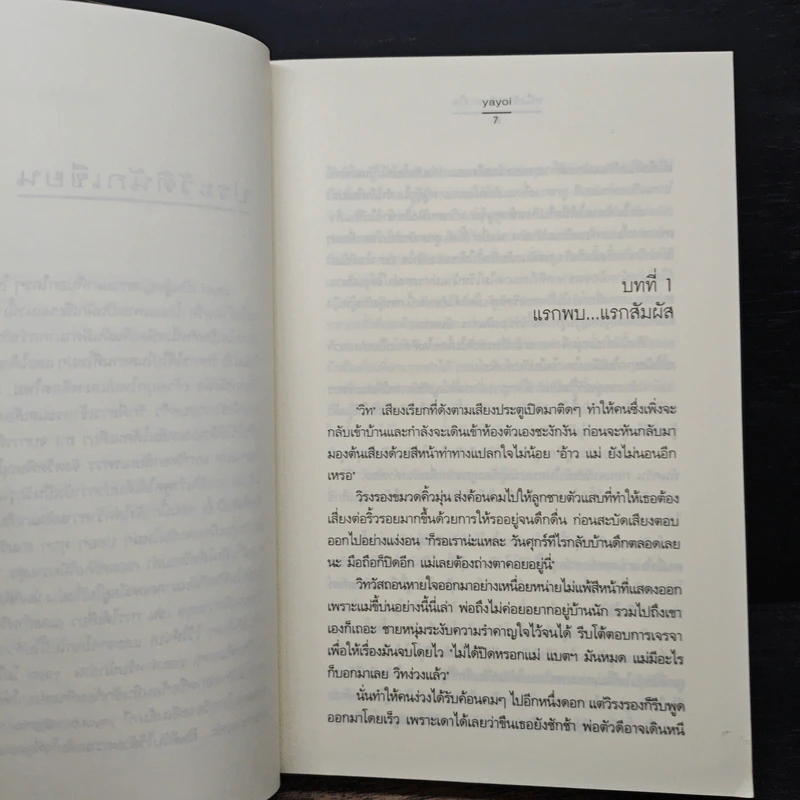 yayoi
7
บทที่ 1
แรกพบ...แรกสัมผัส
'วิท' เสียงเรียกที่ดังตามเสียงประตูเปิดมาติดๆ ทำให้คนซึ่งเพิ่งจะ
กลับเข้าบ้านและกำลังจะเดินเข้าห้องตัวเองชะงักงัน ก่อนจะหันกลับมา
มองต้นเสียงด้วยสีหน้าท่าทางแปลกใจไม่น้อย 'อ้าว แม่ ยังไม่นอนอีก
เหรอ'
วิรงรองขมวดคิ้วมุ่น ส่งค้อนคมไปให้ลูกชายตัวแสบที่ทำให้เธอต้อง
เสี่ยงต่อริ้วรอยมากขึ้นด้วยการให้รออยู่จนดึกดื่น ก่อนสะบัดเสียงตอบ
ออกไปอย่างแง่งอน 'ก็รอเราน่ะแหละ วันศุกร์ทีไรกลับบ้านดึกตลอดเลย
นะ มือถือก็ปิดอีก แม่เลยต้องถ่างตาคอยอยู่นี่'
วิทวัสถอนหายใจออกมาอย่างเหนื่อยหน่ายไม่แพ้สีหน้าที่แสดงออก
เพราะแม่ขี้บ่นอย่างนี้นี่เล่า พ่อถึงไม่ค่อยอยากอยู่บ้านนัก รวมไปถึงเขา
เองก็เถอะ ชายหนุ่มระงับความรำคาญใจไว้จนได้ รีบโต้ตอบการเจรจา
เพื่อให้เรื่องมันจบโดยไว 'ไม่ได้ปิดหรอกแม่ แบตฯ มันหมด แม่มีอะไร
ก็บอกมาเลย วิทง่วงแล้ว'
นั่นทำให้คนง่วงได้รับค้อนคมๆ ไปอีกหนึ่งดอก แต่วิรงรองก็รีบพูด
ออกมาโดยเร็ว เพราะเดาได้เลยว่าขืนเธอยังชักช้า พ่อตัวดีอาจเดินหนี